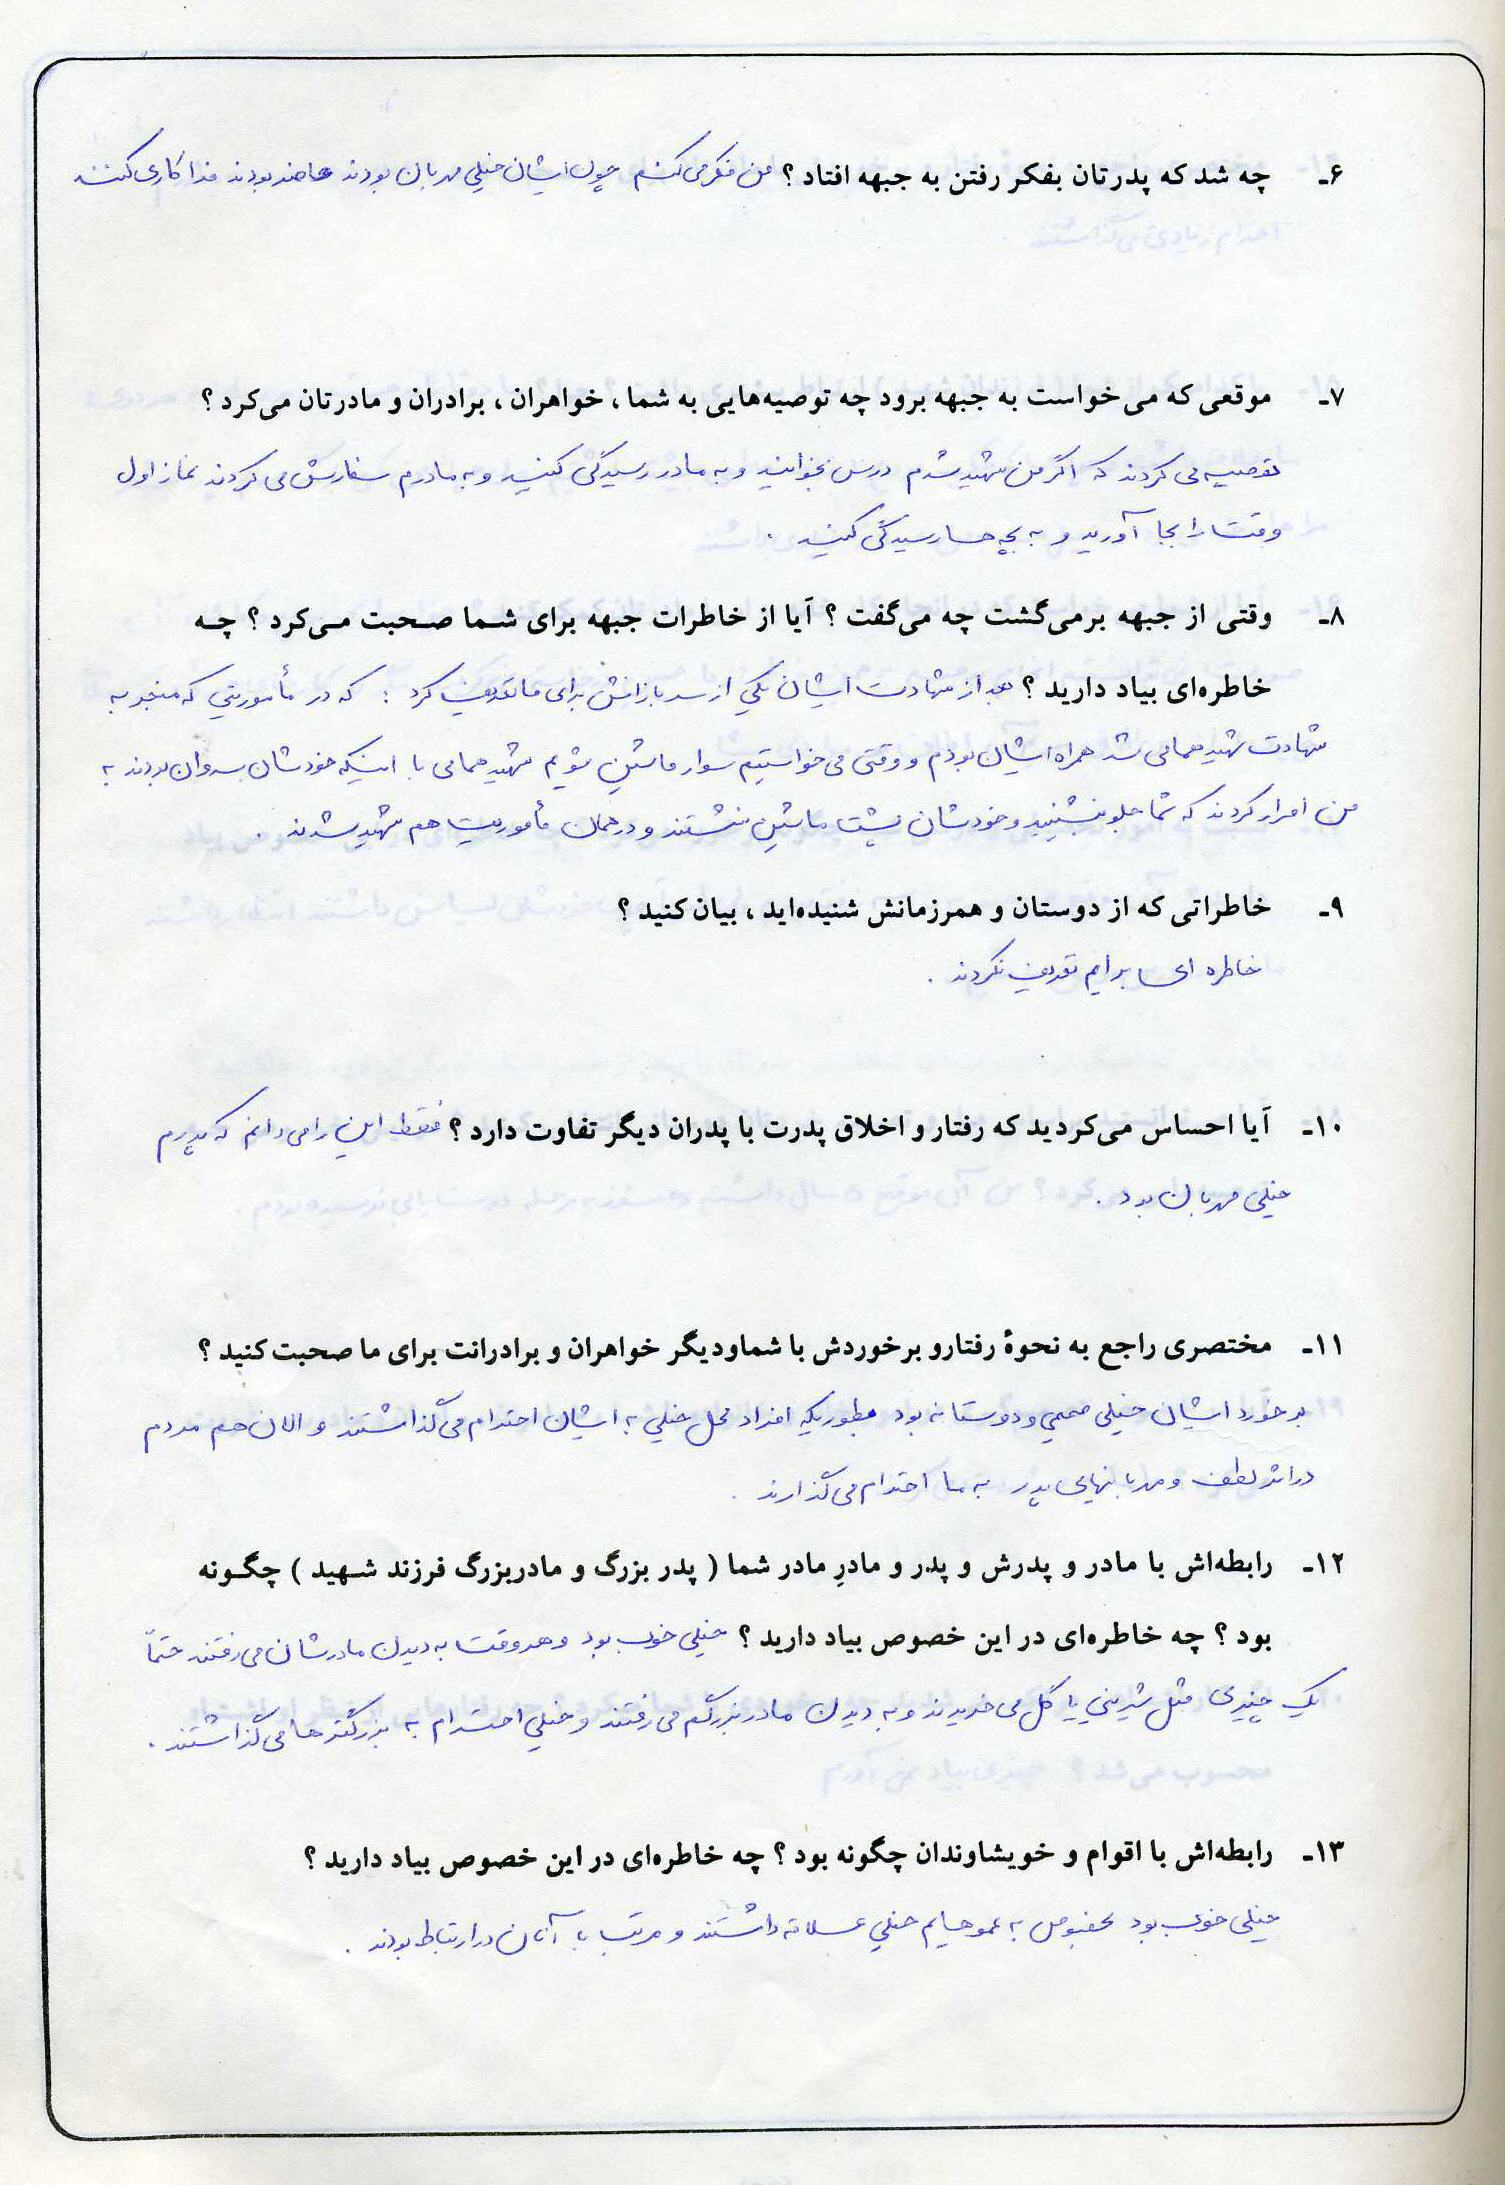 ۶ـ چه شد که پدرتان بفکر رفتن به جبهه افتاد ؟ من فکر می کنم چون ایشان خیلی مهربان بودند حاضر بودند فداکاری کنند
۷ـ موقعی که می خواست به جبهه برود چه توصیه‌هایی به شما ، خواهران ، برادران و مادرتان می‌کرد ؟
توصیه می کردند که اگر من شهید شدم درس بخوانید و به مادر رسیدگی کنید و به مادرم سفارش می کردند نماز اول
وقت را بجا آورید و به بچه ها رسیدگی کنید .
۸ـ وقتی از جبهه برمی‌گشت چه می‌گفت ؟ آیا از خاطرات جبهه برای شما صحبت می‌کرد ؟ چه
خاطره‌ای بیاد دارید ؟ بعد از شهادت ایشان یکی از سربازانش برای ما تعریف کرد : که در مأموریتی که منجر به
شهادت شهید همامی شد همراه ایشان بودم و وقتی می خواستیم سوار ماشین شویم شهید همامی با اینکه خودشان سروان بودند به
من اصرار کردند که شما جلو بنشینید و خودشان پشت ماشین نشستند و در همان مأموریت هم شهید شدند .
۹ـ خاطراتی که از دوستان و همرزمانش شنیده‌اید ، بیان کنید ؟
خاطره ای برایم تعریف نکردند .
۱۰ـ آیا احساس می‌کردید که رفتار و اخلاق پدرت با پدران دیگر تفاوت دارد ؟ فقط این را می دانم که پدرم
خیلی مهربان بود .
۱۱ـ مختصری راجع به نحوۀ رفتارو برخوردش با شماودیگر خواهران و برادرانت برای ما صحبت کنید ؟
برخورد ایشان خیلی صمیمی و دوستانه بود بطوریکه افراد محل خیلی به ایشان احترام می گذاشتند و الان هم مردم
در اثر لطف و مهربانیهای پدر به ما احترام می گذارند .
۱۲ـ رابطه‌اش با مادر و پدرش و پدر و مادرِ مادر شما ( پدر بزرگ و مادربزرگ فرزند شهید ) چگونه
بود ؟ چه خاطره‌ای در این خصوص بیاد دارید ؟ خیلی خوب بود و هر وقت به دیدن مادرشان می رفتند حتماً
یک چیزی مثل شیرینی یا گل می خریدند و به دیدن مادر بزرگم می رفتند و خیلی احترام به بزرگترها می گذاشتند .
۱۳ـ رابطه‌اش با اقوام و خویشاوندان چگونه بود ؟ چه خاطره‌ای در این خصوص بیاد دارید ؟
خیلی خوب بود بخصوص به عموهایم خیلی علاقه داشتند و مرتب با آنان در ارتباط بودند .